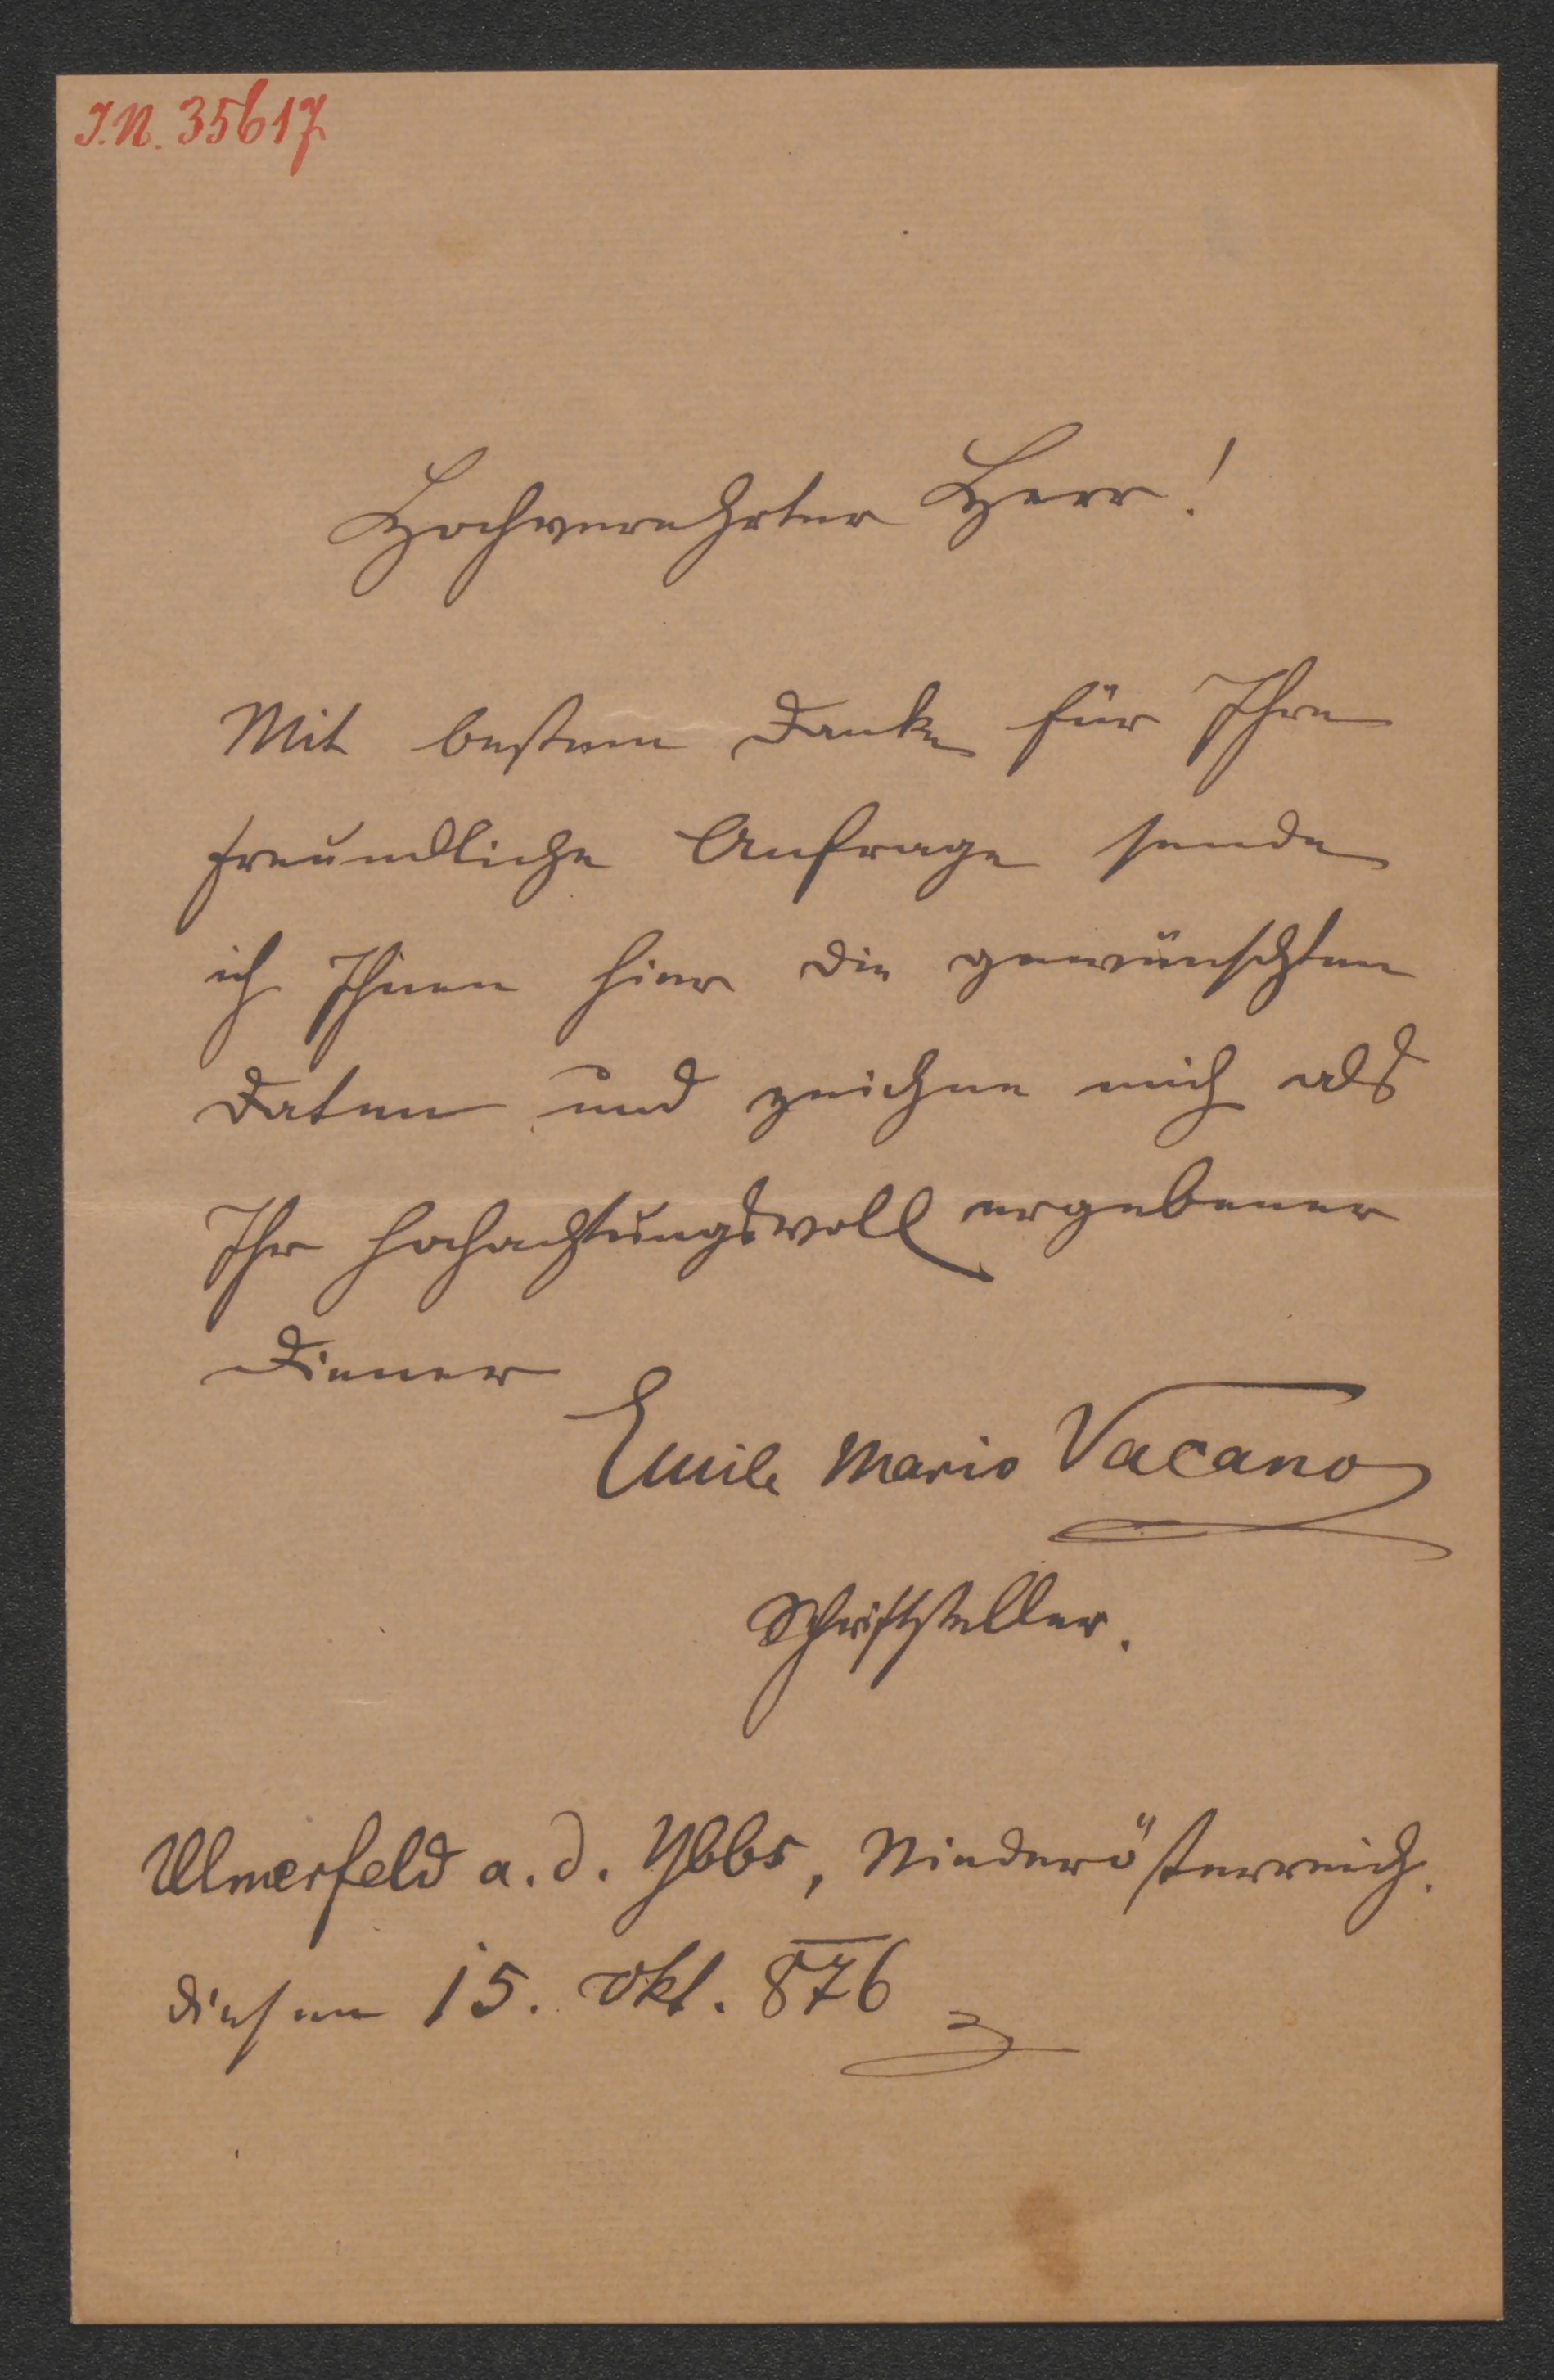 I.N. 35617
Hochverehrter Herr!
Mit bestem Danke für Ihre
freundliche Anfrage sende
ich Ihnen hier die gewünschten
Daten und zeichne mich als
Ihr hochachtungsvoll ergebener
Diener
Emile Mario Vacano
Schriftsteller.
Ulmerfeld a. d. Ybbs, Niederösterreich.
diesen 15. Okt. 876